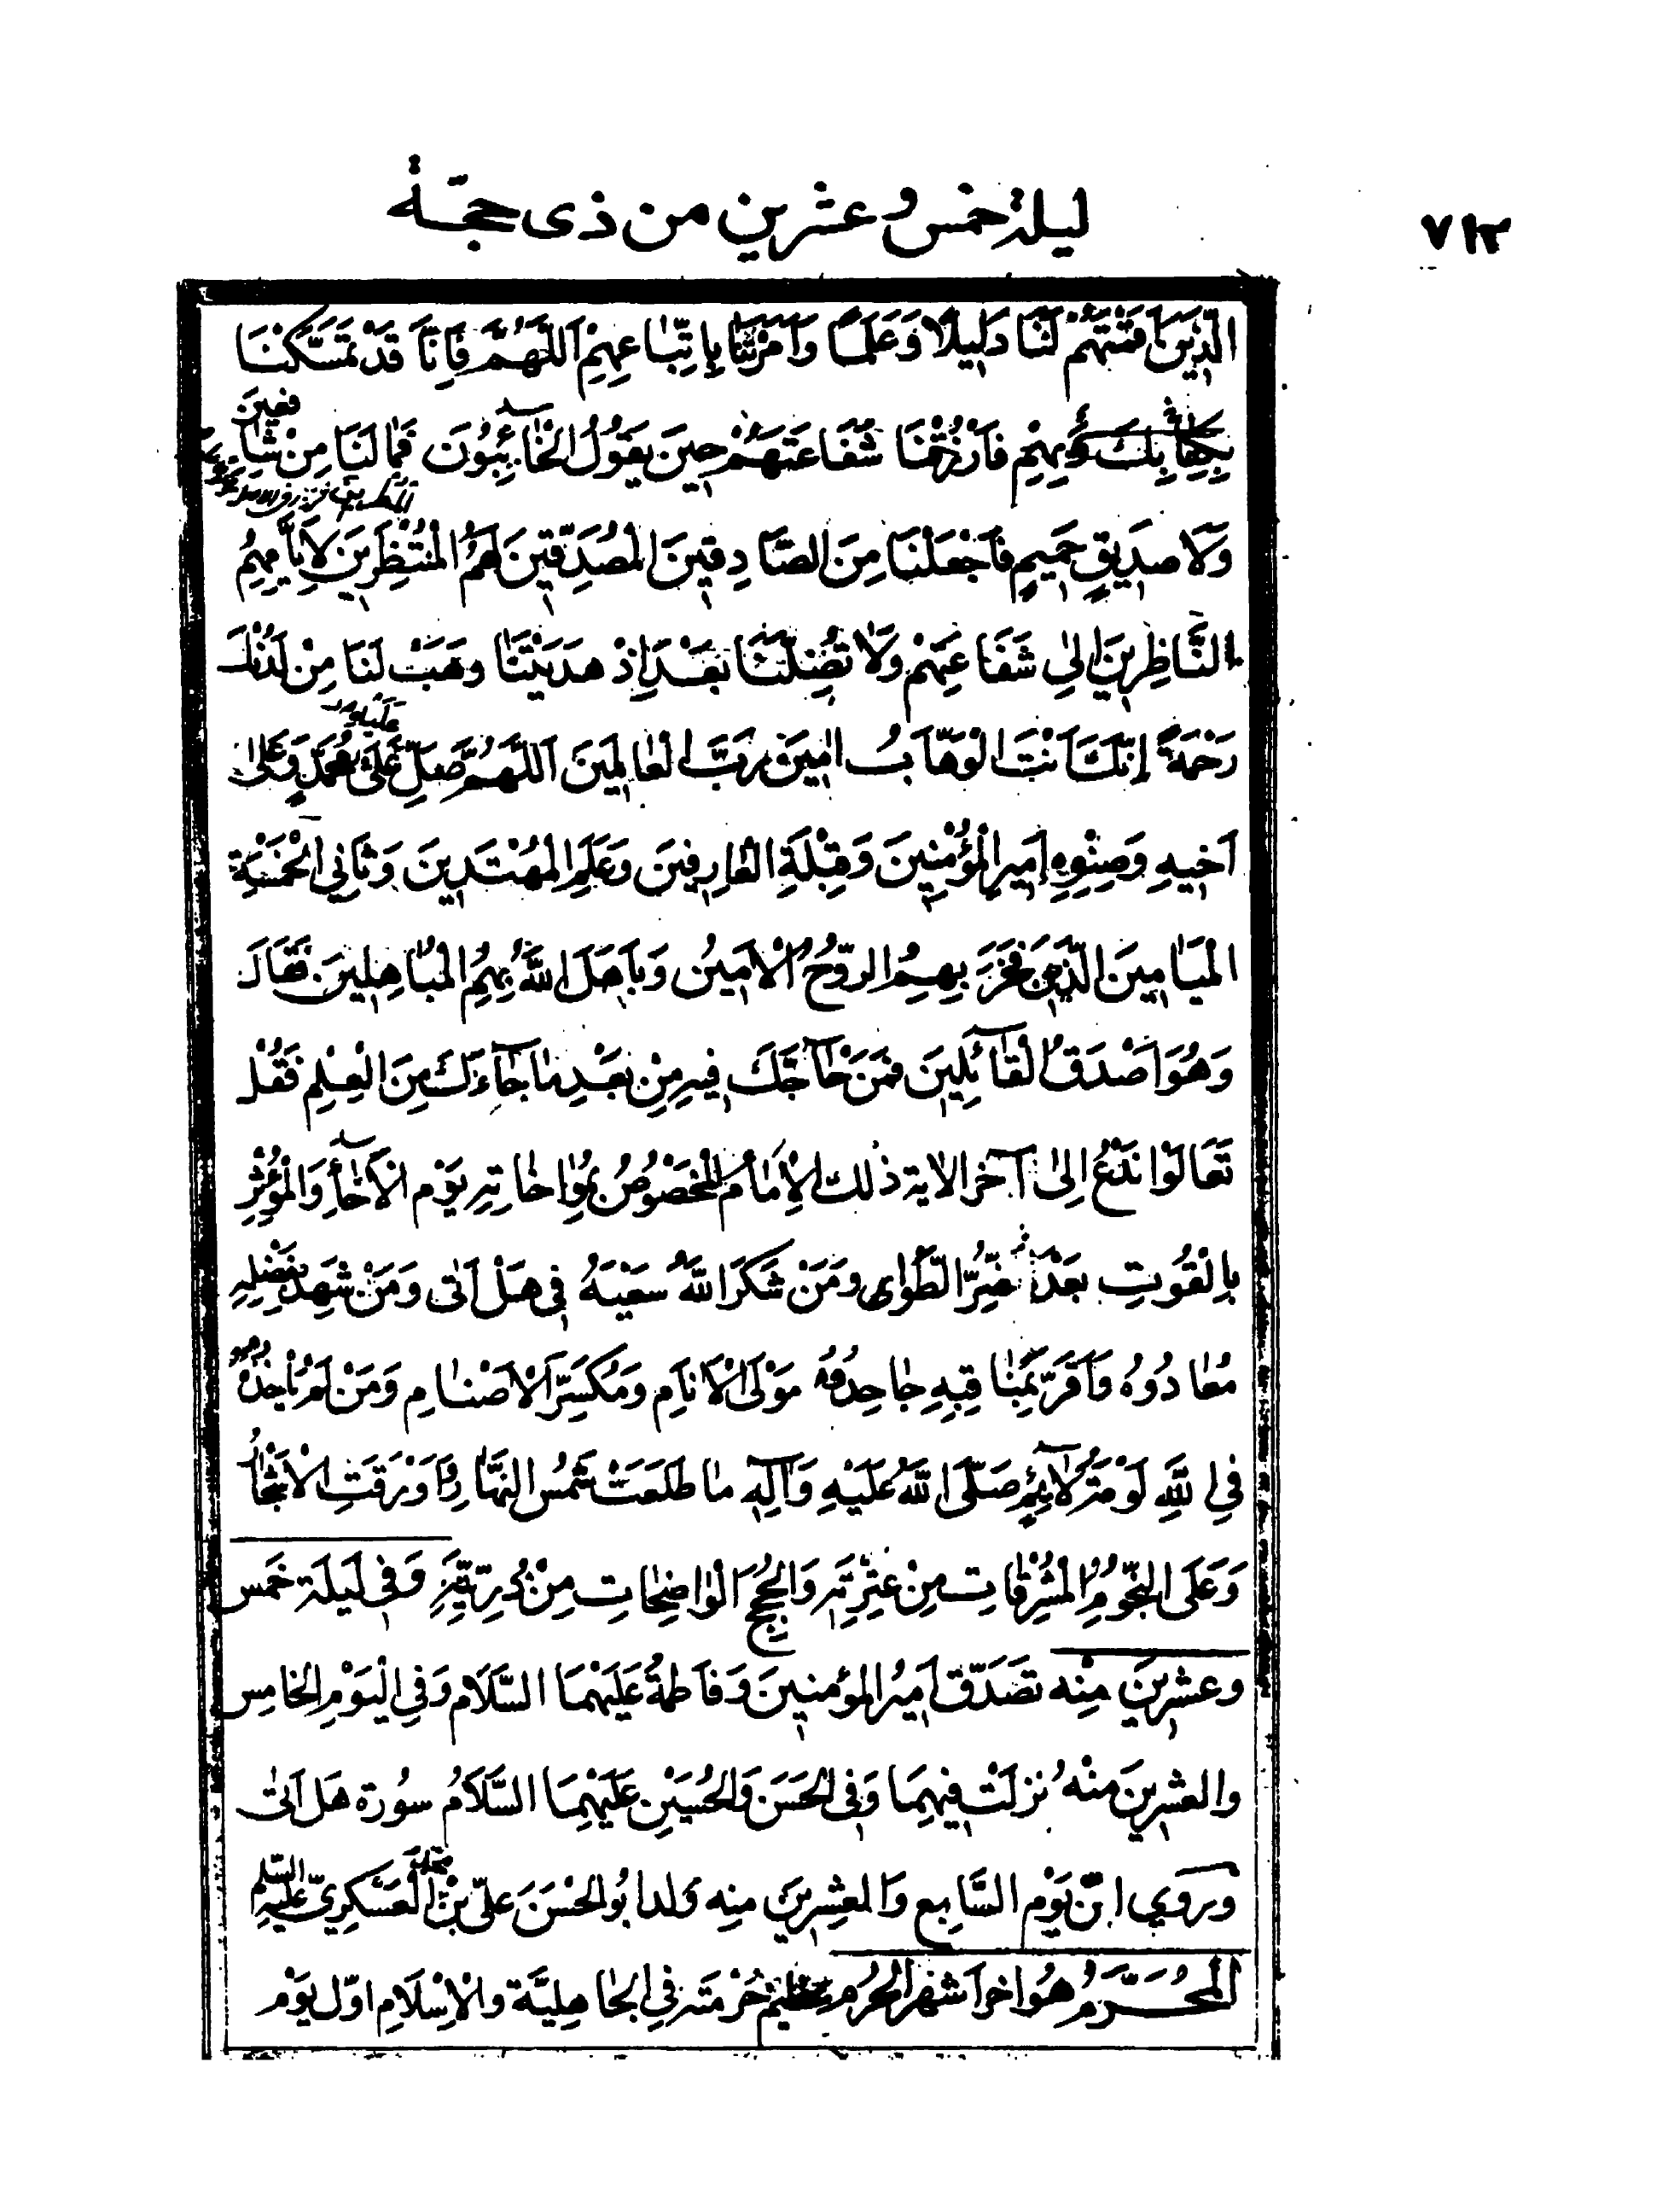 ٧١٢
ليلة خمس و عشرين من ذى حجّة
الَّذِينَ اَقَمْتَهُمْ لَنَا دَلِيلًا وَعَلَمًا وَاَمَرْتَنَا بِاِتِّبَاعِهِمْ اَللَّهُمَّ فَاِنَّا قَدْ تَمَسَّكْنَا
بِكِتَابِكَ وَبِهِمْ فَارْزُقْنَا شَفَاعَتَهُمْ حِينَ يَقُولُ الْخَائِبُونَ فَمَا لَنَا مِنْ شَافِعِينَ
وَلَا صَدِيقٍ حَمِيمٍ فَاجْعَلْنَا مِنَ الصَّادِقِينَ الْمُصَدِّقِينَ لَهُمُ الْمُنْتَظِرِينَ لِاَيَّامِهِمُ
النَّاظِرِينَ اِلىٰ شَفَاعَتِهِمْ وَلَا تُضِلَّنَا بَعْدَ اِذْ هَدَيْتَنَا وهَبْ لَنَا مِنْ لَدُنْكَ
رَحْمَةً اِنَّكَ اَنْتَ الْوَهَّابُ اٰمِينَ رَبَّ الْعَالَمِينَ اَللَّهُمَّ صَلِّ عَلَى مُحَمَّدٍ وَعَلىٰ
اَخِيهِ وَصِنْوِهِ اَمِيرِ الْمُؤْمِنِينَ وَقِبْلَةِ الْعَارِفِينَ وَعَلَمِ الْمُهْتَدِينَ وَثَانِي الْخَمْسَةِ
الْمَيَامِينَ الَّذِينَ فَخَرَ بِهِمُ الرُّوحُ الْاَمِينُ وَبَاهَلَ اللَّهُ بِهِمُ الْمُبَاهِلِينَ فَقَالَ
وَهُوَ اَصْدَقُ الْقَائِلِينَ فَمَنْ حَاجَّكَ فِيهِ مِنْ بَعْدِ مَا جَاءَكَ مِنَ الْعِلْمِ فَقُلْ
تَعَالَوْا نَدْعُ اِلىٰ آخر الاية ذٰلِكَ الْاِمَامُ الْمَخْصُوصُ بِمُوَاخَاتِهِ يَوْمَ الْاِخَاءِ وَالْمُؤْثِرِ
بِالْقُوتِ بَعْدَ ضُرِّ الطَّوٰى وَمَنْ شَكَرَ اللَّهُ سَعْيَهُ فِي هَلْ اَتىٰ وَمَنْ شَهِدَ بِفَضْلِهِ
مُعَادُوهُ وَاَقَرَّ بِمَنَاقِبِهِ جَاحِدُوهُ مَوْلَى الْاَنَامِ وَمُكَسِّرِ الْاَصْنَامِ وَمَنْ لَمْ تَاْخُذْهُ
فِي اللَّهِ لَوْمَةُ لَائِمٍ صَلَّى اللَّهُ عَلَيْهِ وَآلِهِ مَا طَلَعَتْ شَمْسُ النَّهَارِ وَاَوْرَقَتِ الْاَشْجَارُ
وَعَلَى النُّجُومِ الْمُشْرِقَاتِ مِنْ عِتْرَتِهِ وَالْحُجَجِ الْوَاضِحَاتِ مِنْ ذُرِّيَّتِهِ وَفِي لَيلَةِ خَمس
وعشرِينَ مِنْه تَصَدَّقَ اَمِيرُ المؤمنِينَ وَفَاطِمَةُ عَلَيْهِمَا السَّلَام وَفِي الْيَوْمِ الخامِس
والعشرِينَ مِنْهُ نزلَتْ فِيهِمَا وَفِي الْحَسَنَ وَالحُسَيْنِ عَلَيْهِمَا السَّلَامُ سُورة هَل اَتىٰ
وروي انّ يَوْم السَّابِع وَالعِشرِينَ مِنه وَلد ابُو الحْسَنَ عَلي بْن محمّد الْعَسْكَرِيّ عليهِ السّلم
اَلْمُحَرَّمُ هُوَ اخر اَشهُر الحُرُم عظيم حُرْمَته فِي الجَاهِلِيَّة والْاِسْلَامِ اوّل يَوْم